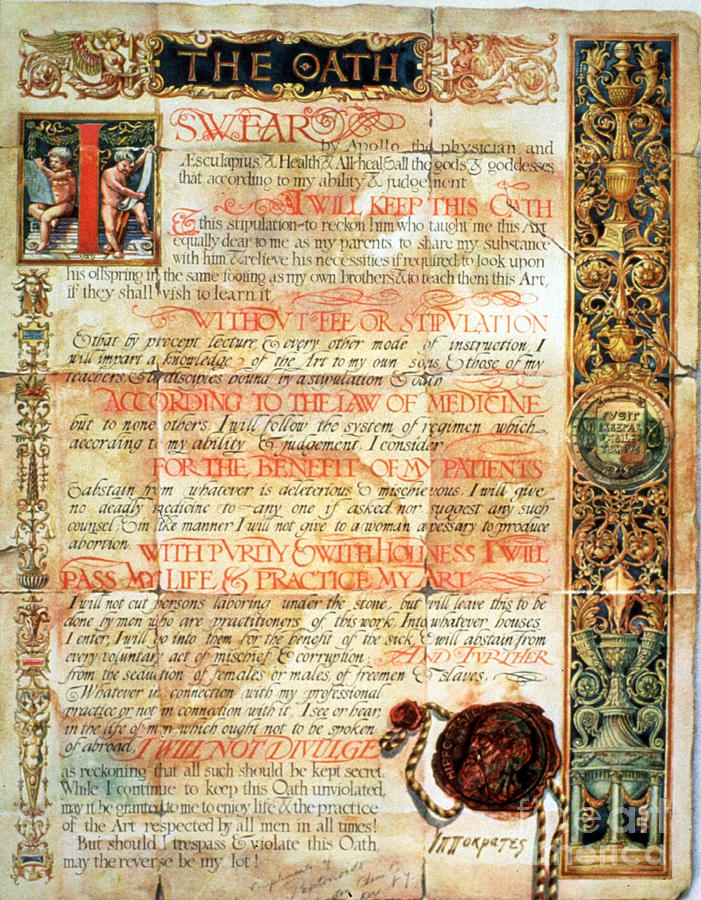 THE OATH
I SWEAR
by Apollo, the physician and
Æsculapius, & Health & All-heal & all the gods & goddesses
that according to my ability & judgement
I WILL KEEP THIS OATH
& this stipulation-to reckon him who taught me this Art
equally dear to me as my parents to share my substance
with him & relieve his necessities if required; to look upon
his offspring in the same footing as my own brothers & to teach them this Art,
if they shall wish to learn it
WITHOVT FEE OR STIPVLATION
& that by precept, lecture & every other mode of instruction, I
will impart a knowledge of the Art to my own sons, & those of my
teachers, & to disciples bound by a stipulation & oath
ACCORDING TO THE LAW OF MEDICINE
but to none others. I will follow the system of regimen which,
according to my ability & judgement, I consider
FOR THE BENEFIT OF MY PATIENTS
& abstain from whatever is deleterious & mischievous. I will give
no deadly medicine to any one if asked nor suggest any such
counsel & in like manner I will not give to a woman a pessary to produce
abortion.
WITH PVRITY & WITH HOLINESS I WILL
PASS MY LIFE & PRACTICE MY ART
I will not cut persons laboring under the stone, but will leave this to be
done by men who are practitioners of this work. Into whatever houses
I enter, I will go into them for the benefit of the sick, & will abstain from
every voluntary act of mischief & corruption; AND FVRTHER
from the seduction of females or males, of freemen & slaves.
Whatever in connection with my professional
practice or not in connection with it, I see or hear,
in the life of men which ought not to be spoken
of abroad, I WILL NOT DIVULGE
as reckoning that all such should be kept secret.
While I continue to keep this Oath unviolated,
may it be granted to me to enjoy life & the practice
of the Art respected by all men in all times!
But should I trespass & violate this Oath,
may the reverse be my lot!
Ιπποκρατες
Compliments of
fine art
america